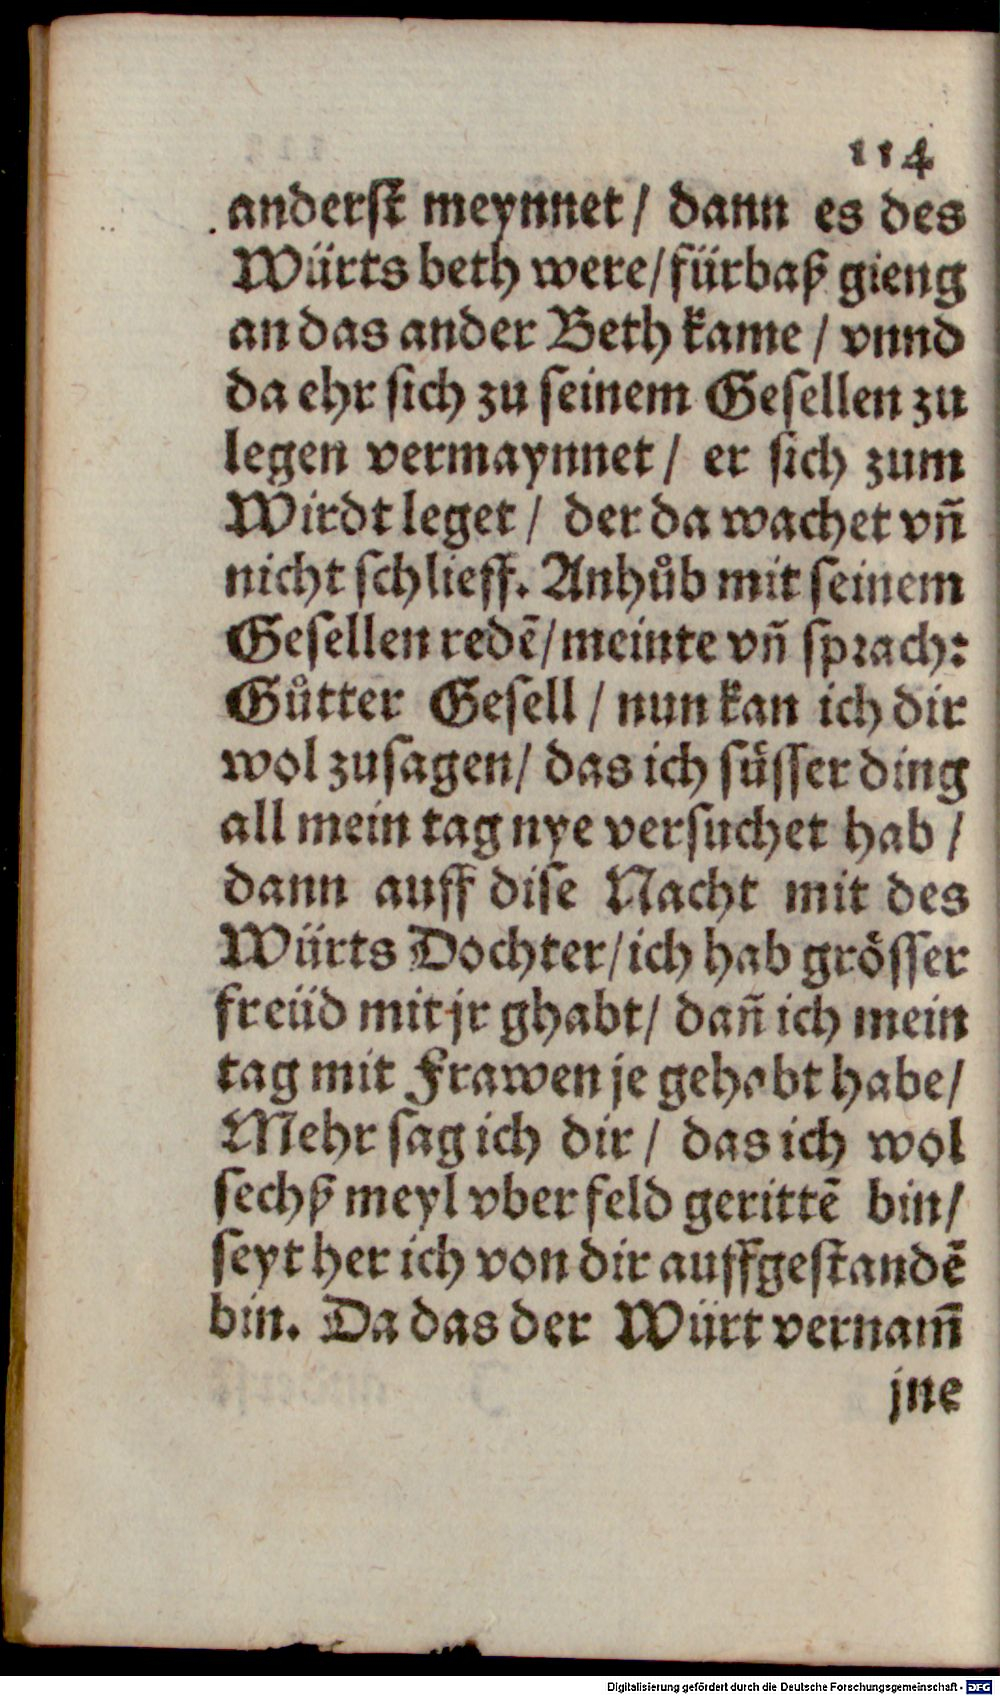 114
anderst meynnet / dann es des
Würts beth were / fürbaß gieng
an das ander Beth kame / vnnd
da ehr sich zu seinem Gesellen zu
legen vermaynnet / er sich zum
Wirdt leget / der da wachet vñ
nicht schlieff. Anhůb mit seinem
Gesellen redẽ / meinte vñ sprach:
Gůtter Gesell / nun kan ich dir
wol zusagen / das ich süsser ding
all mein tag nye versuchet hab /
dann auff dise Nacht mit des
Würts Dochter / ich hab grösser
freüd mit jr ghabt / dañ ich mein
tag mit Frawen je gehabt habe /
Mehr sag ich dir / das ich wol
sechß meyl vber feld gerittẽ bin /
seyt her ich von dir auffgestandẽ
bin. Da das der Würt vernam̃
jne
Digitalisierung gefördert durch die Deutsche Forschungsgemeinschaft - DFG